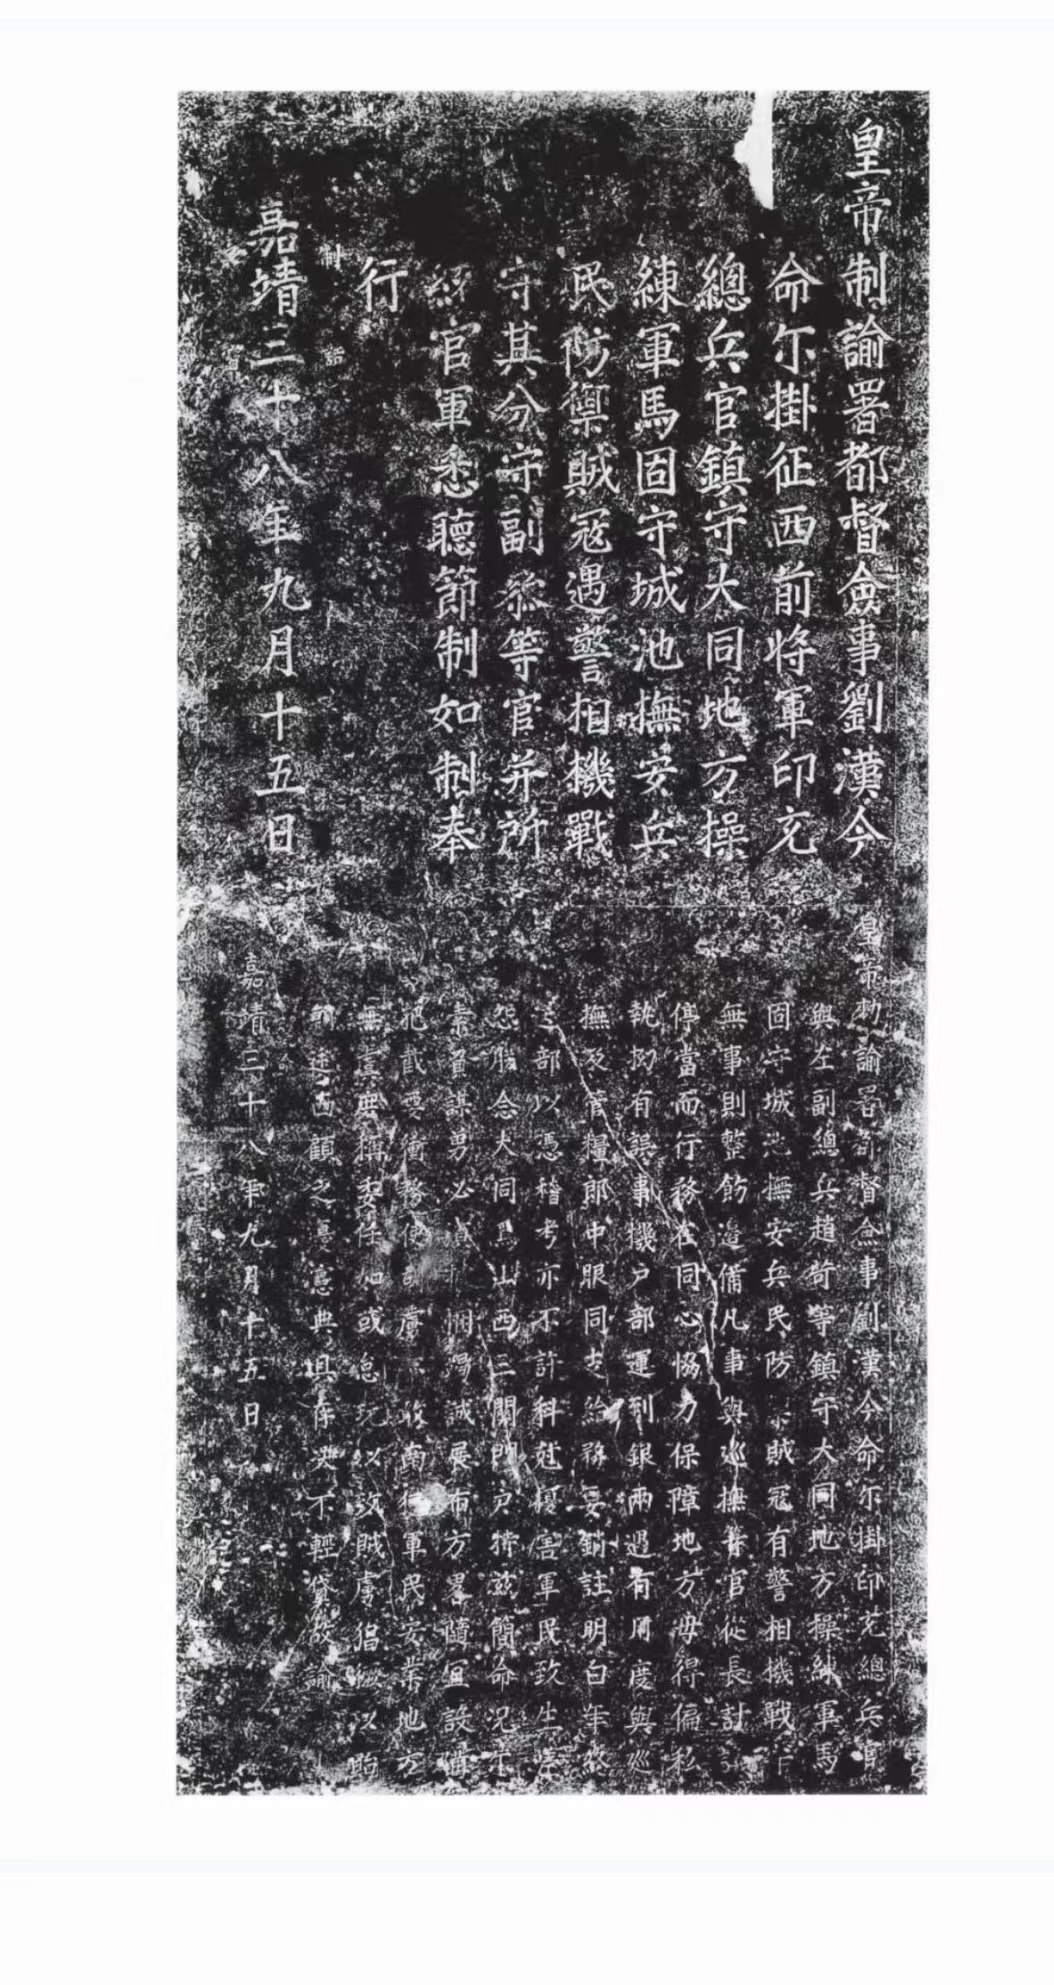 皇帝制諭署都督僉事劉漢今
命尓掛征西前將軍印充
總兵官鎮守大同地方操
練軍馬固守城池撫安兵
民防禦賊寇遇警相機戰
守其分守副叅等官并所
官軍悉聽節制如制奉
行
制
誥
嘉靖三十八年九月十五日
皇帝勑諭署都督僉事劉漢今命尓掛印充總兵官
與左副總兵趙等鎮守大同地方操練軍馬
固守城池撫安兵民防賊寇有警相機戰守
無事則整飭邉備凡事與巡撫等官從長計
停當而行務在同心恊力保障地方毋得偏私
執拗有誤事機户部運到銀兩遇有用度與巡
撫及管糧郎中眼同支給務要銷註明白年終
部以憑稽考亦不許科尅擾害軍民致生
念大同爲山西三關門户特兹簡命况尓
素負謀勇必竭誠展布方畧隨宜設備
扼要衝務使虜不敢南軍民安業地方
無虞委任如或怠玩以致賊虜猖獗以貽
西顧之憂憲典具存决不輕貸故諭
嘉靖三十八年九月十五日